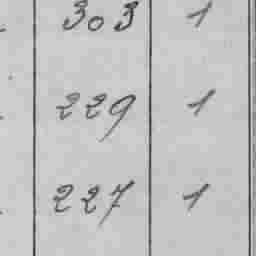 303 1
229 1
227 1